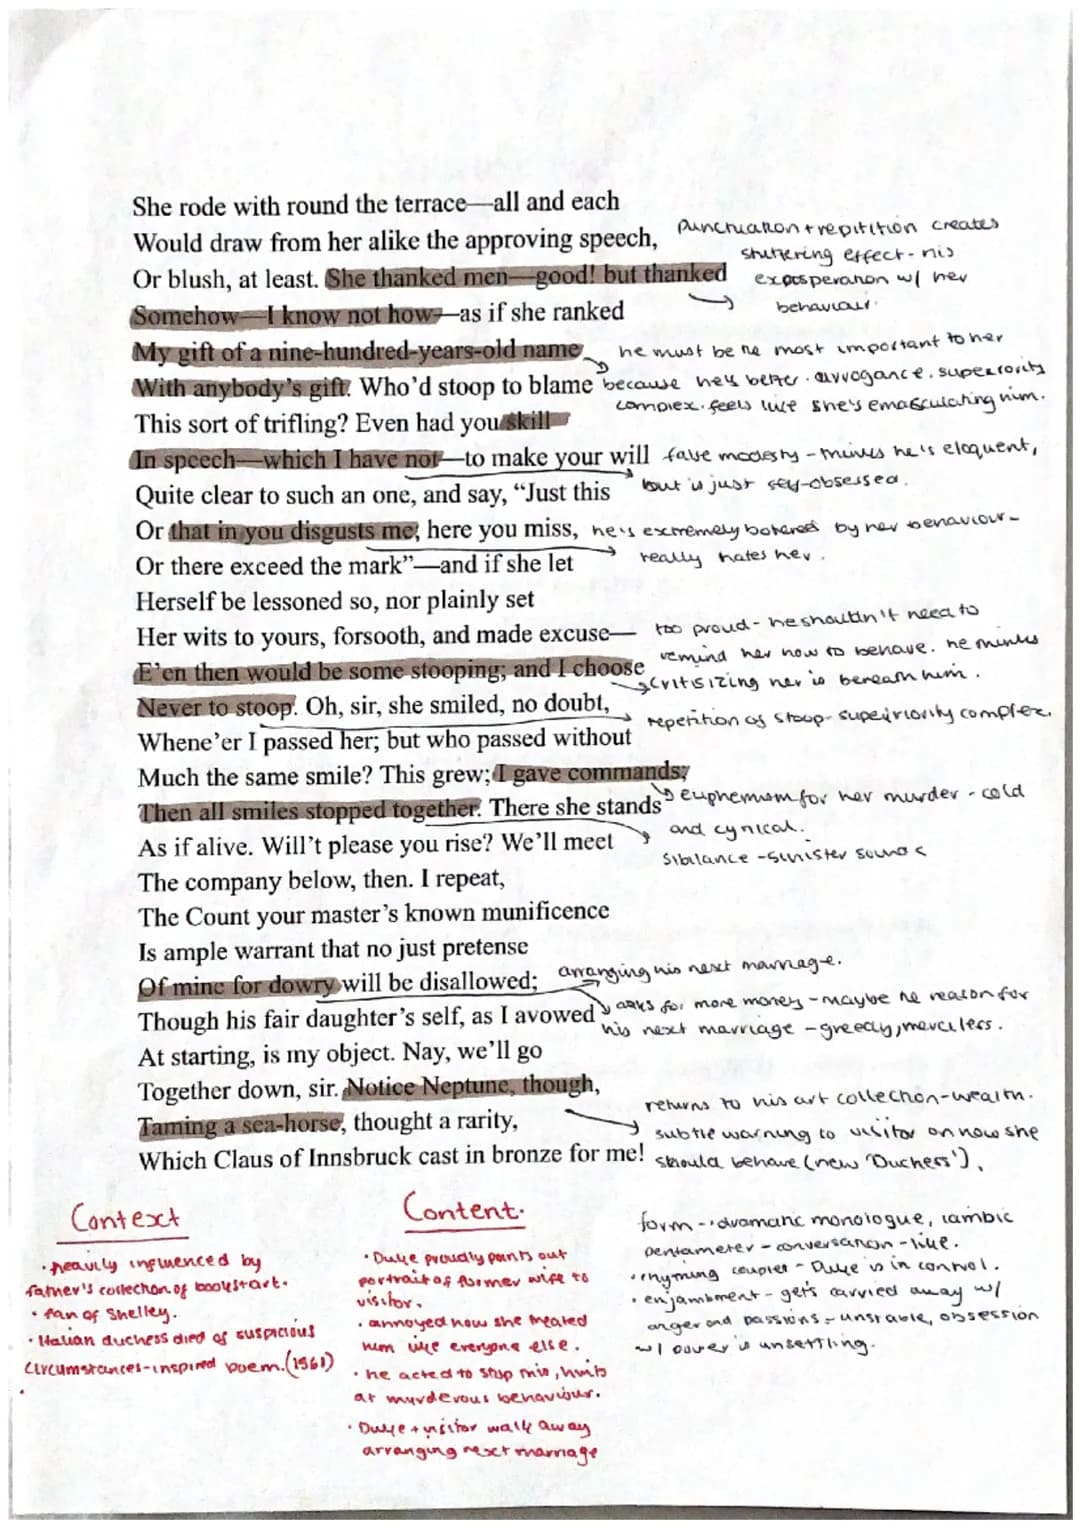 She rode with round the terrace—all and each
Would draw from her alike the approving speech,
Or blush, at least. She thanked men—good! but thanked
Somehow—I know not how—as if she ranked
My gift of a nine-hundred-years-old name
With anybody's gift. Who'd stoop to blame
This sort of trifling? Even had you skill
In speech—which I have not—to make your will
Quite clear to such an one, and say, "Just this
Or that in you disgusts me; here you miss,
Or there exceed the mark"—and if she let
Herself be lessoned so, nor plainly set
Her wits to yours, forsooth, and made excuse—
E'en then would be some stooping; and I choose
Never to stoop. Oh, sir, she smiled, no doubt,
Whene'er I passed her; but who passed without
Much the same smile? This grew; I gave commands;
Then all smiles stopped together. There she stands
As if alive. Will't please you rise? We'll meet
The company below, then. I repeat,
The Count your master's known munificence
Is ample warrant that no just pretense
Of mine for dowry will be disallowed;
Though his fair daughter's self, as I avowed
At starting, is my object. Nay, we'll go
Together down, sir. Notice Neptune, though,
Taming a sea-horse, thought a rarity,
Which Claus of Innsbruck cast in bronze for me!
Punctuation + repitition creates
stuttering effect - his
exasperation w/ her
behaviour.
he must be the most important to her
because he's better. arrogance. superiority
complex. feels like she's emasculating him.
false modesty - thinks he's eloquent,
but is just self-obsessed.
he's extremely bothered by her behaviour -
really hates her.
too proud - he shouldn't need to
remind her how to behave. he thinks
critisizing her is beneath him.
repetition of stoop - superiority complex.
euphemism for her murder - cold
and cynical.
Sibilance - sinister sounds
arranging his next marriage.
asks for more money - maybe the reason for
his next marriage - greedy, merciless.
returns to his art collection - wealth.
subtle warning to visitor on how she
should behave (new 'Duchess').
Context
• heavily influenced by
father's collection of books + art.
• fan of Shelley.
• Italian duchess died of suspicious
circumstances - inspired poem. (1561)
Content.
• Duke proudly points out
portrait of former wife to
visitor.
• annoyed how she treated
him like everyone else.
• he acted to stop this, hints
at murderous behaviour.
• Duke + visitor walk away
arranging next marriage
form - • dramatic monologue, iambic
pentameter - conversation - like.
• rhyming couplet - Duke is in control.
• enjambment - gets carried away w/
anger and passions - unstable, obsession
w/ power is unsettling.